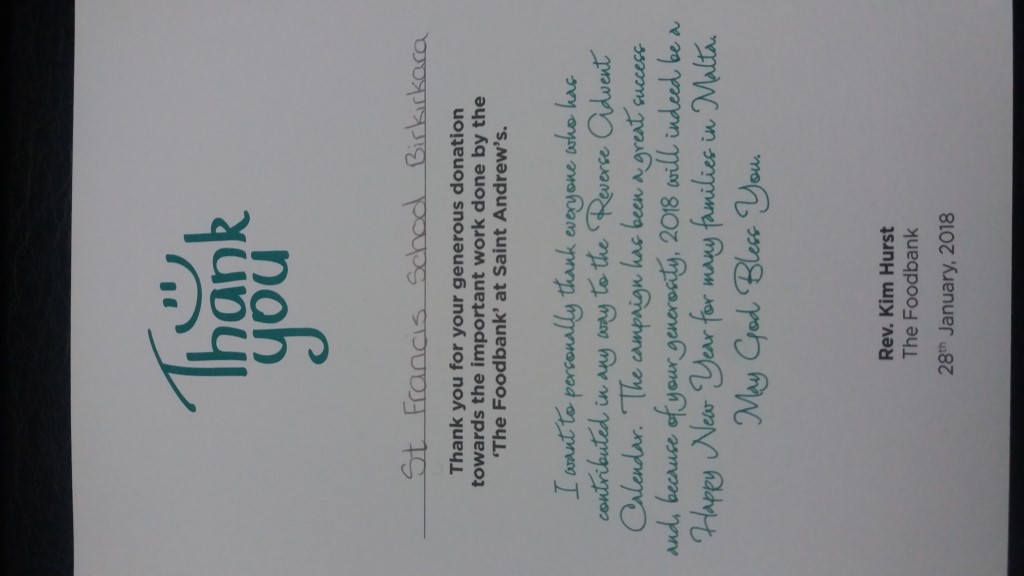 Thank
you
St Francis School Birkirkara
Thank you for your generous donation
towards the important work done by the
‘The Foodbank’ at Saint Andrew’s.
I want to personally thank everyone who has
contributed in any way to the Reverse Advent
Calendar. The campaign has been a great success
and, because of your generosity, 2018 will indeed be a
Happy New Year for many families in Malta.
May God Bless You
Rev. Kim Hurst
The Foodbank
28th January, 2018